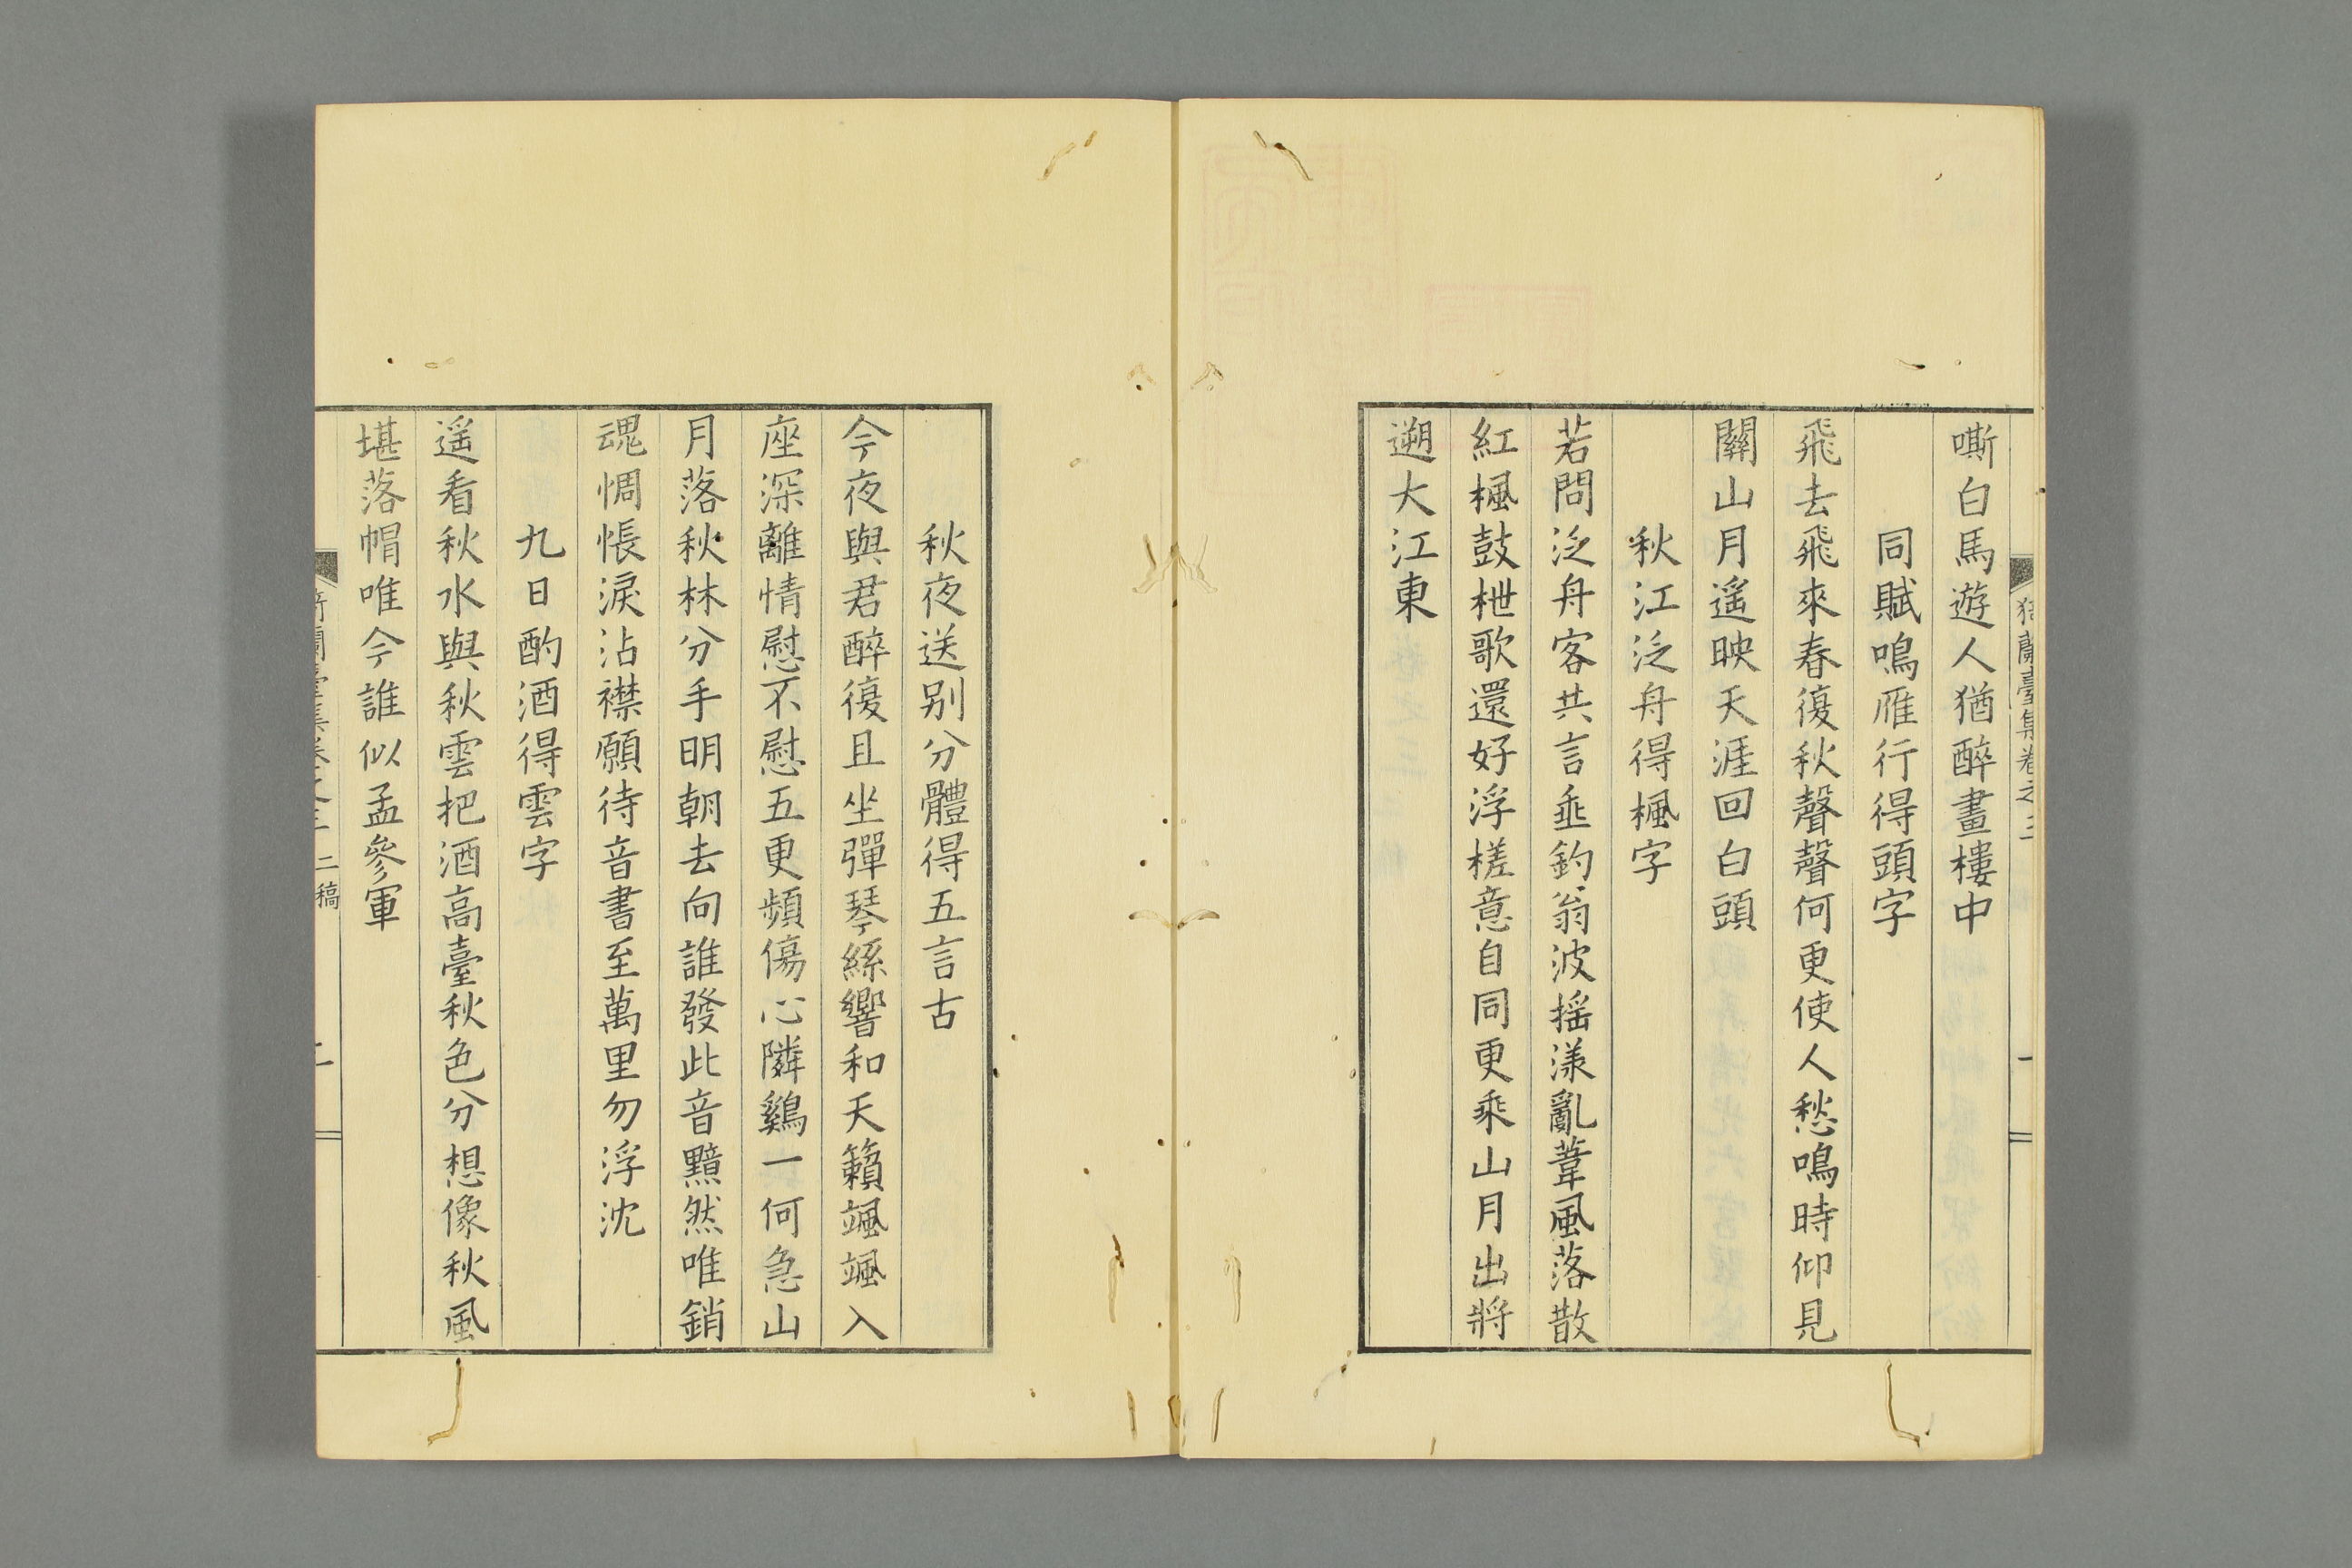 蘭臺集卷之三
嘶白馬遊人猶醉畫樓中
同賦鳴雁行得頭字
飛去飛來春復秋聲聲何更使人愁鳴時仰見
關山月遙映天涯回白頭
秋江泛舟得楓字
若問泛舟客共言垂釣翁波摇漾亂葦風落散
紅楓鼓枻歌還好浮槎意自同更乘山月出將
遡大江東
秋夜送別分體得五言古
今夜與君醉復且坐彈琴絲響和天籟颯颯入
座深離情慰不慰五更頻傷心隣鷄一何急山
月落秋林分手明朝去向誰發此音黯然唯銷
魂惆悵淚沾襟願待音書至萬里勿浮沈
九日酌酒得雲字
遥看秋水與秋雲把酒高臺秋色分想像秋風
堪落帽唯今誰似孟參軍
蘭臺集卷之三 二稿